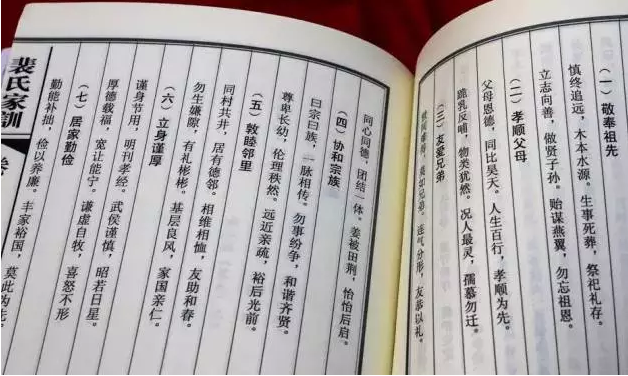 (一)敬奉祖先
慎终追远,木本水源。生事死葬,祭祀礼存。
立志向善,做贤子孙。贻谋燕翼,勿忘祖恩。
(二)孝顺父母
父母恩德,同比昊天。人生百行,孝顺为先。
跪乳反哺,物类犹然。况人最灵,孺慕勿迁。
(三)友爱兄弟
莫如兄弟。连气分形,友恭以礼。
同心同德,团结一体。姜被田荆,怡怡后启。
(四)协和宗族
曰宗曰族,一脉相传。勿事纷争,和谐齐贤。
尊卑长幼,伦理秩然。远近亲疏,裕后光前。
(五)敦睦邻里
同村共井,居有德邻。相维相恤,友助和春。
勿生嫌隙,有礼彬彬。基层良风,家国亲仁。
(六)立身谨厚
谨身节用,明刊孝经。武侯谨慎,昭若日星。
厚德载福,宽让能宁。谦虚自牧,喜怒不形
(七)居家勤俭
勤能补拙,俭以养廉。丰家裕国,莫此为先
裴氏家訓